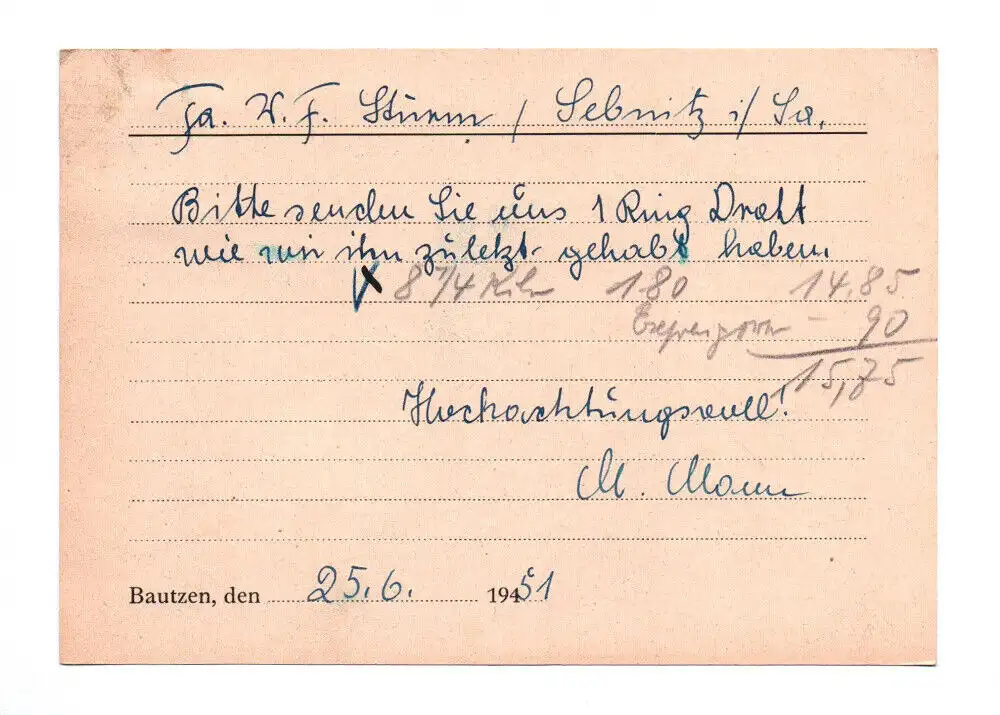 Fa. W. F. Sturm / Sebnitz i/ Sa.
Bitte senden Sie uns 1 Ring Draht
wie wir ihn zuletzt gehabt haben.
8 1/4 Kilo 180 14.85
– 90
15,75
Hochachtungsvoll!
M. Mann
Bautzen, den 25.6. 1951